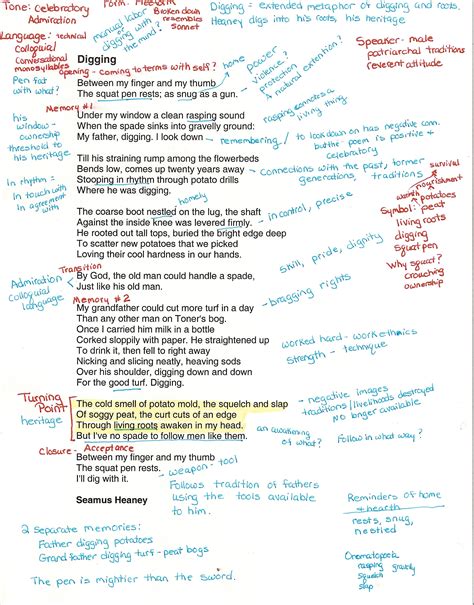 Tone: Celebratory
Admiration
Form: Freeform
Broken down
resembles
sonnet
Digging = extended metaphor of digging and roots.
Heaney digs into his roots, his heritage
Language: technical
Colloquial
Conversational
monosyllables
manual labor
or
digging with
the mind?
Speaker - male
patriarchal traditions
reverent attitude
Digging
opening - coming to terms with self?
home
power
violence?
protection
A natural extension?
Pen fat
with what?
Between my finger and my thumb
The squat pen rests; as snug as a gun.
Memory #1
rasping sometimes a
living thing
his
window -
ownership
threshold to
his heritage
Under my window a clean rasping sound
When the spade sinks into gravelly ground:
My father, digging. I look down
remembering / to look down on has negative conn.
but the poem is positive +
celebratory
Till his straining rump among the flowerbeds
Bends low, comes up twenty years away
Stooping in rhythm through potato drills
Where he was digging.
connections with the past, former
generations, traditions
survival
nourishment
warmth potatoes
In rhythm =
in touch with
in agreement
with
homely
in control, precise
Symbol: peat
living roots
digging
squat pen
Why squat?
crouching
ownership
The coarse boot nestled on the lug, the shaft
Against the inside knee was levered firmly.
He rooted out tall tops, buried the bright edge deep
To scatter new potatoes that we picked
Loving their cool hardness in our hands.
skill, pride, dignity
Transition
Admiration
Colloquial
language
By God, the old man could handle a spade,
Just like his old man.
bragging rights
Memory #2
My grandfather could cut more turf in a day
Than any other man on Toner's bog.
Once I carried him milk in a bottle
Corked sloppily with paper. He straightened up
To drink it, then fell to right away
Nicking and slicing neatly, heaving sods
Over his shoulder, digging down and down
For the good turf. Digging.
worked hard - work ethics
strength - technique
Turning
Point
heritage
The cold smell of potato mold, the squelch and slap
Of soggy peat, the curt cuts of an edge
Through living roots awaken in my head.
But I've no spade to follow men like them.
negative images
traditions/livelihoods destroyed
No longer available
an awakening
of what?
Follow in what way?
Closure - Acceptance
Between my finger and my thumb
The squat pen rests.
I'll dig with it.
weapon - tool
Follows tradition of fathers
using the tools available
to him.
Seamus Heaney
Reminders of home
+ hearth
nests, snug,
nestled
2 Separate memories:
Father digging potatoes
Grandfather digging turf - peat bogs
The pen is mightier than the sword.
Onomatopoeia
rasping gravelly
squelch
slap